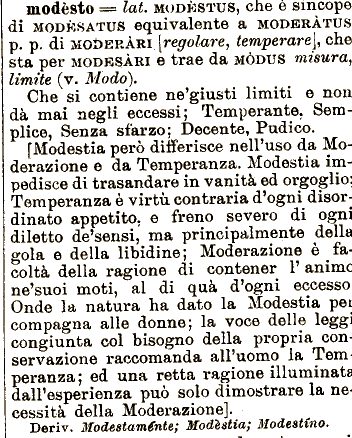 modèsto = lat. MODÈSTUS, che è sincope
di MODÈSATUS equivalente a MODERÀTUS
p. p. di MODERÀRI [regolare, temperare], che
sta per MODESÀRI e trae da MÒDUS misura,
limite (v. Modo).
Che si contiene ne'giusti limiti e non
dà mai negli eccessi; Temperante, Sem-
plice, Senza sfarzo; Decente, Pudico.
[Modestia però differisce nell'uso da Mo-
derazione e da Temperanza. Modestia im-
pedisce di trasandare in vanità ed orgoglio;
Temperanza è virtù contraria d'ogni disor-
dinato appetito, e freno severo di ogni
diletto de'sensi, ma principalmente della
gola e della libidine; Moderazione è fa-
coltà della ragione di contener l'animo
ne'suoi moti, al di quà d'ogni eccesso
Onde la natura ha dato la Modestia per
compagna alle donne; la voce delle leggi
congiunta col bisogno della propria con-
servazione raccomanda all'uomo la Tem-
peranza; ed una retta ragione illuminata
dall'esperienza può solo dimostrare la ne-
cessità della Moderazione].
Deriv. Modestaménte; Modèstia; Modestíno.